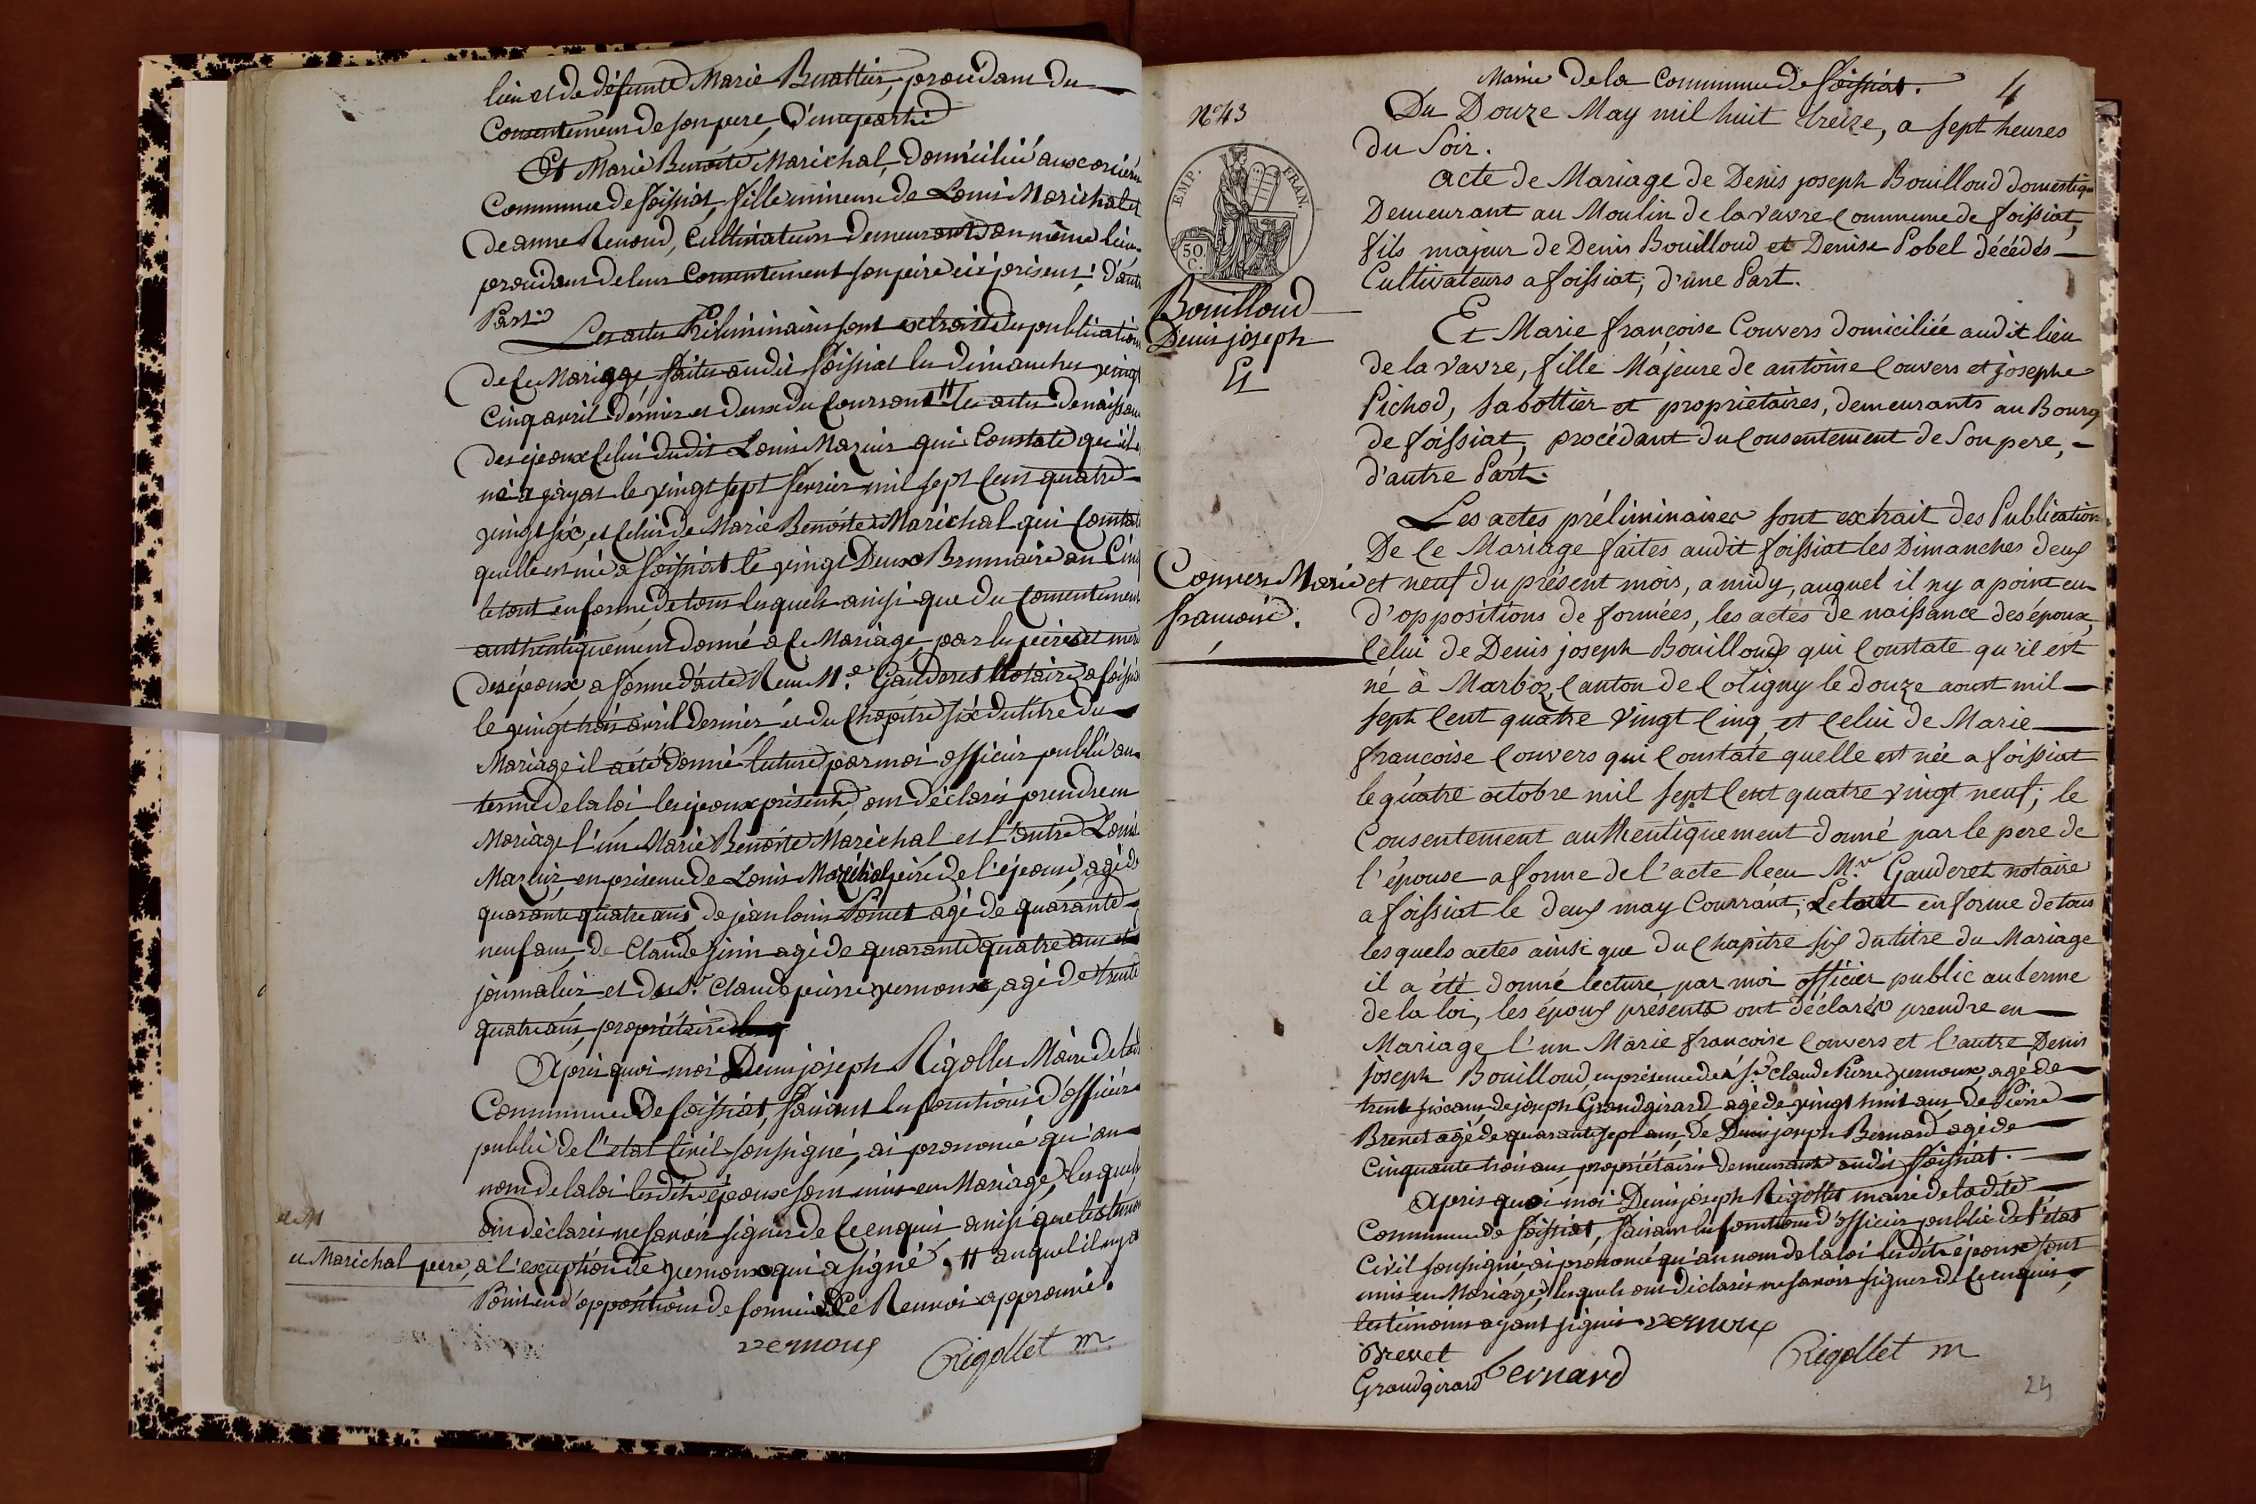 lieu et de défunte Marie Buattier, procédant du
Consentement de son pere, D'une part
Et Marie Benoite Marechal, domiciliée aux
Commune de foissiat, fille mineure de Louis Marichal et
de anne Renoud, Cultivateurs demeurant au même lieu
procédant de leur Consentement son peire ici présent; d'autre
Part
Les actes Préliminaires sont extraits des publications
de Ce Mariage faites audit foissiat les dimanches vingt
Cinq avril dernier et deux du Courrant # les actes de naissance
des époux Celui dudit Louis Maruir qui Constate qu'il est
né a jayat le vingt sept fevrier mil sept Cent quatre
vingt six, et Celui de Marie Benoite Marichal qui Constate
quelle est née a foissiat le vingt Deux Brumaire an Cinq
le tout en forme, de tous lesquels ainsi que du Consentement
authentiquement donné a Ce Mariage par les peires et mere
des époux a forme d'acte Recu Me Gauderet Notaire a foissiat
le vingt trois avril dernier et du Chapitre six du titre du
Mariage il a été donné lecture par moi officier public au
terme de la loi les époux présents, ont déclarés prendre en
Mariage l'un Marie Benoite Marechal et l'autre Louis
Maruir, en présence de Louis Maréchal peire de l'épouse, agé de
quarante quatre ans de jean louis agé de quarante
neuf ans, de Claude agé de quarante quatre ans et
journalier et du Sr Claude pierre vernoux, agé de trente
quatre ans, propriétaire
Après quoi moi Denis joseph Rigollet Maire de la de
Commune de foissiat, faisant les fonctions d'officier
public de l'état Civil soussigné, ai prononcé qu'au
nom de la loi lesdits époux sont unis en Mariage, lesquels
ont déclarés ne savoir signer de Ce enquis ainsi que les temoins
et Marichal peire, a l'exception de vernoux qui a signé, # auquel il n'y a
Point eu d'oppositions de formée Ce Renvoi approuvé.
vernoux
Rigollet m
Mairie de la Commune de foissiat.
4
N° 43
Du Douze May mil huit treize, a sept heures
du Soir.
EMP. FRAN.
50 C.
acte de Mariage de Denis joseph Bouilloud domestique
Demeurant au Moulin de la vavre Commune de foissiat,
fils majeur de Denis Bouilloud et Denise Pobel décédés
Cultivateurs a foissiat; d'une Part.
Bouilloud
Denis joseph
Et
Et Marie françoise Couvers domiciliée audit lieu
de la vavre, fille Majeure de antoine Couvers et josephe
Pichod, Sabottier et proprietaires, demeurants au Bourg
de foissiat, procédant du Consentement de Son pere,
d'autre Part.
Les actes préliminaires sont extrait des Publications
De Ce Mariage faites audit foissiat les Dimanches deux
Couvers Marie
françoise.
et neuf du présent mois, a midy, auquel il ny a point eu
d'oppositions de formées, les actes de naissance des époux,
Celui de Denis joseph Bouilloud qui Constate qu'il est
né à Marboz, Canton de Coligny le douze aoust mil
sept Cent quatre vingt Cinq, et Celui de Marie
francoise Couvers qui Constate quelle est née a foissiat
le quatre octobre mil sept Cent quatre vingt neuf; le
Consentement authentiquement donné par le pere de
l'épouse a forme de l'acte Recu Mr. Gauderet notaire
a foissiat le deux may Courrant; Le tout en forme de tous
lesquels actes ainsi que du Chapitre six du titre du Mariage
il a été donné lecture par moi officier public au terme
de la loi, les époux présents ont déclarés prendre en
Mariage l'un Marie francoise Couvers et l'autre Denis
joseph Bouilloud, en présence de Sr Claude Pierre vernoux, agé de
trente six ans, de joseph Grandgirard agé de vingt huit ans, De Pierre
Brevet agé de quarante sept ans, de Denis joseph Bernard agé de
Cinquante trois ans propriétaires demeurants audit foissiat.
Après quoi moi Denis joseph Rigollet maire de ladite
Commune de foissiat, faisant les fonctions d'officier public de l'état
Civil soussigné, ai prononcé qu'au nom de la loi lesdits époux sont
unis en Mariage, lesquels ont déclarés ne savoir signer de Ce enquis,
les témoins ayant signés. vernoux
Brevet
Rigollet m
Grandgirard bernard
24